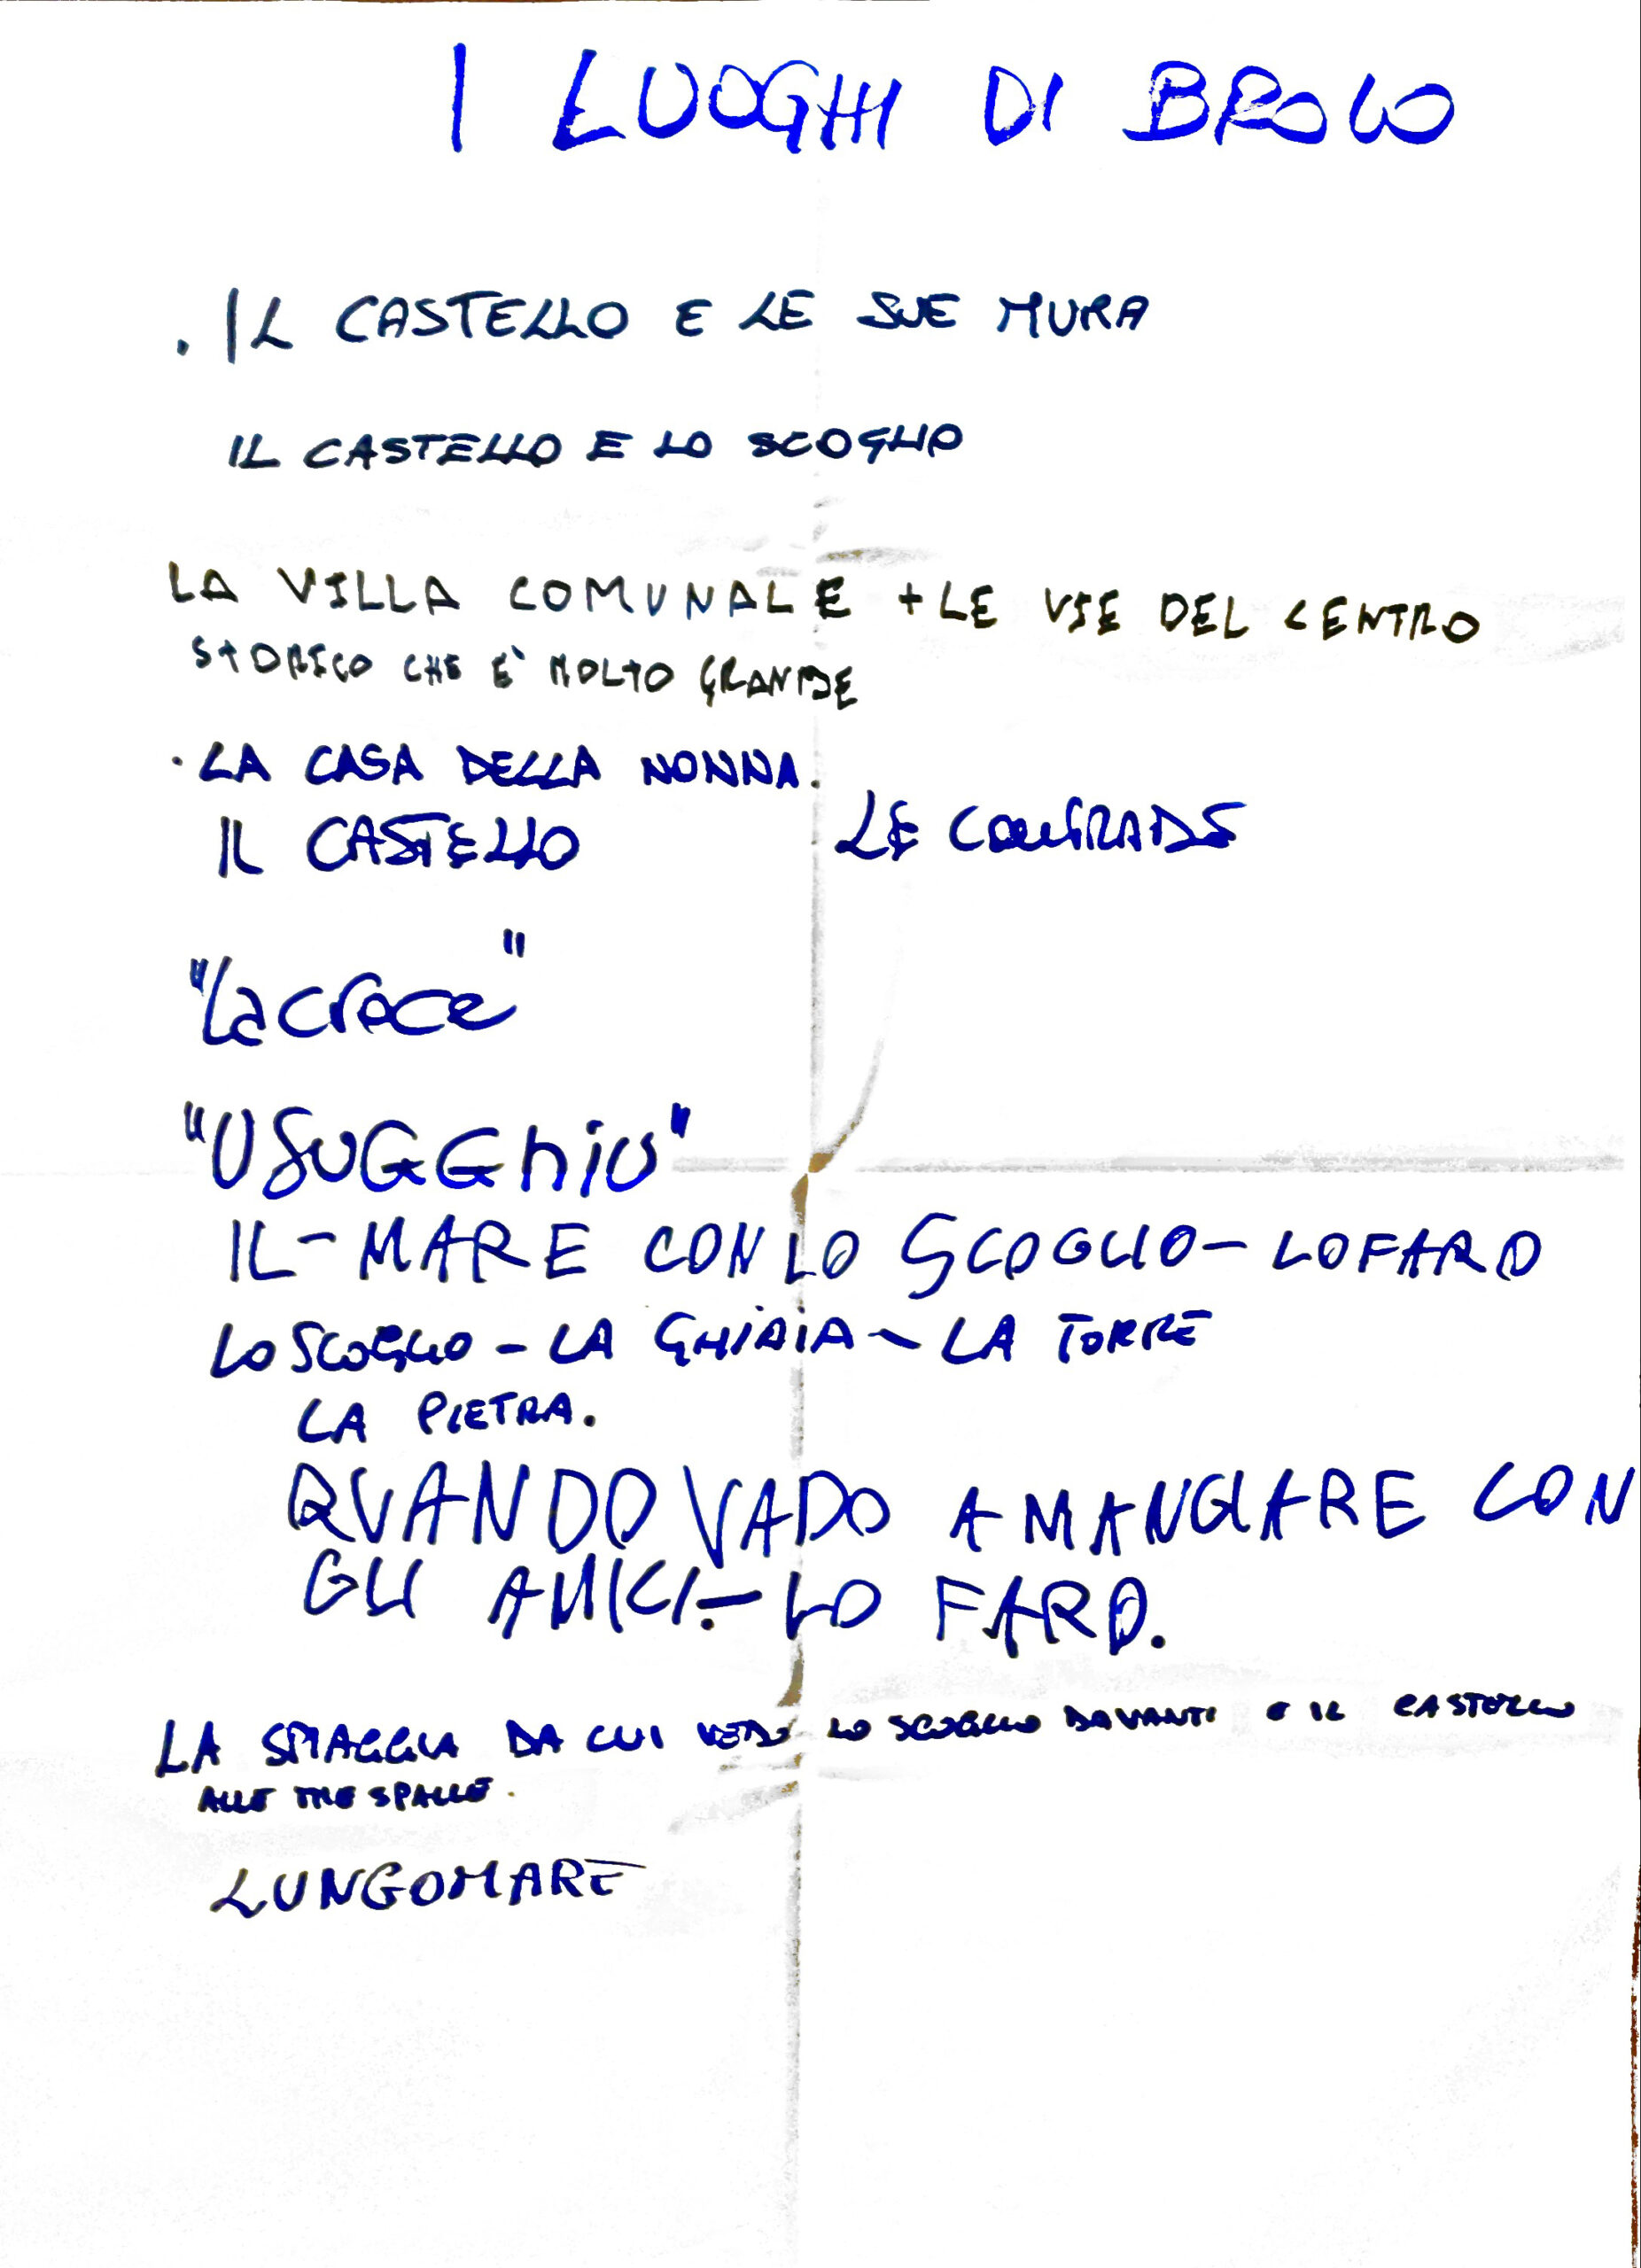 I LUOGHI DI BROLO
. IL CASTELLO E LE SUE MURA
IL CASTELLO E LO SCOGLIO
LA VILLA COMUNALE + LE VIE DEL CENTRO
STORICO CHE E' MOLTO GRANDE
· LA CASA DELLA NONNA.
IL CASTELLO
LE CONTRADE
"La croce"
"U SUGGhiU"
IL - MARE CON LO SCOGLIO - LO FARO
LO SCOGLIO - LA GHIAIA - LA TORRE
LA PIETRA.
QUANDO VADO A MANGIARE CON
GLI AMICI. - LO FARO.
LA SPIAGGIA DA CUI VEDO LO SCOGLIO DAVANTI E IL CASTELLO
ALLE MIE SPALLE.
LUNGOMARE